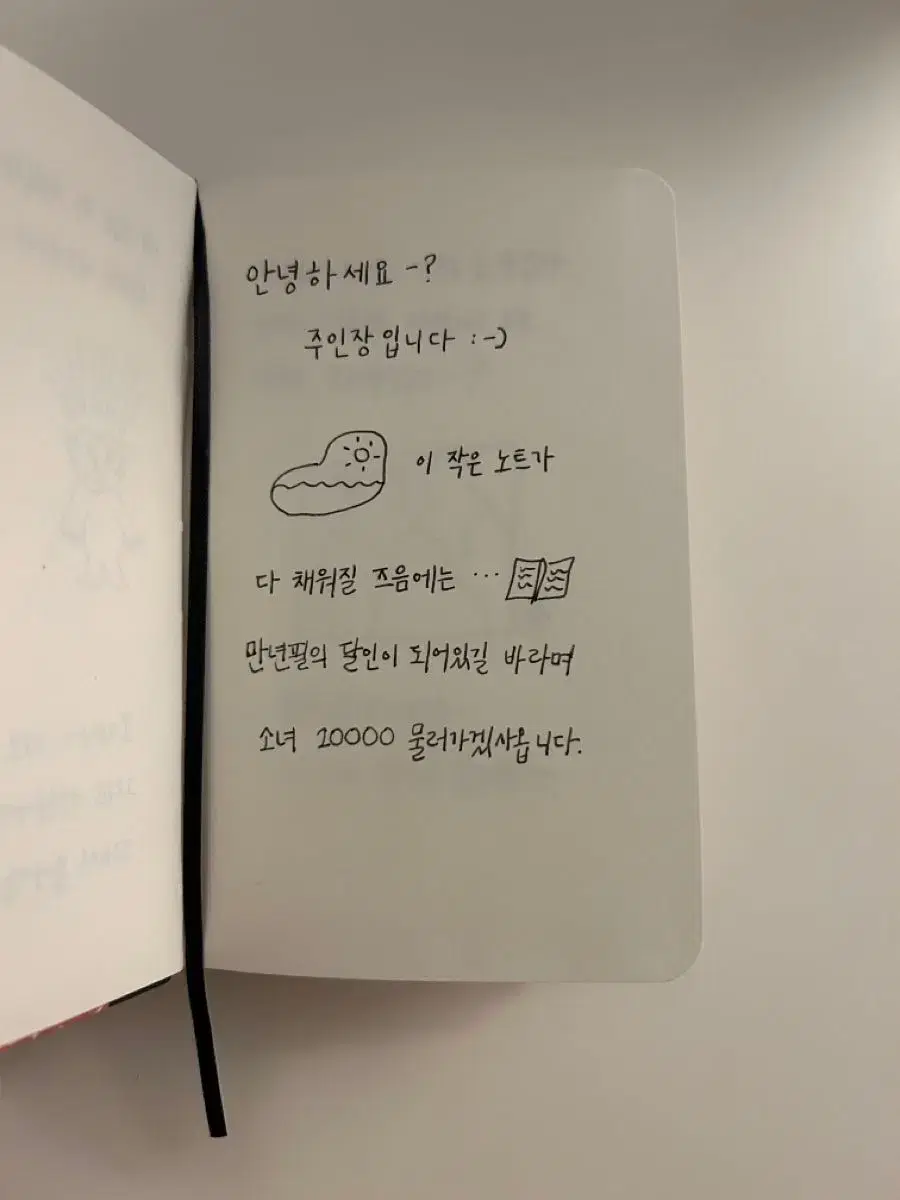 안녕하세요 -?
주인장입니다 :-)
이 작은 노트가
다 채워질 즈음에는 ...
만년필의 달인이 되어있길 바라며
소녀 20000 물러가겠사옵니다.